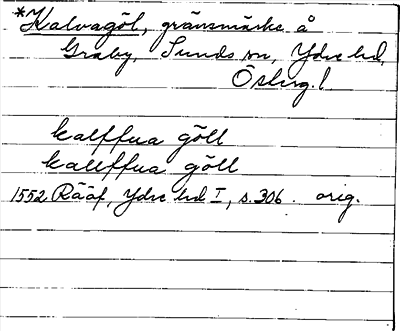 *Kalvagöl, gränsmärke å
Graby, Sunds sn, Ydre hd,
Östergl
kalffua göll
kallffua göll
1552 Rääf, Ydre hd I, s. 306. orig.